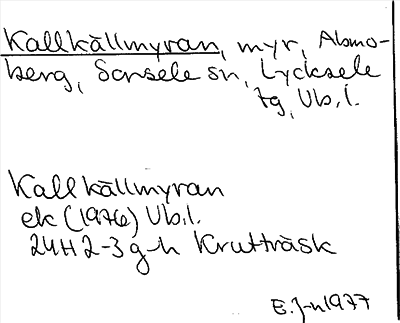 Kallkällmyran, myr, Almo-
berg, Sorsele sn, Lycksele
tg, Vb.l.
Kallkällmyran
ek (1976) Vb.l.
24H 2-3 g-h Krutträsk
E. J-n 1977